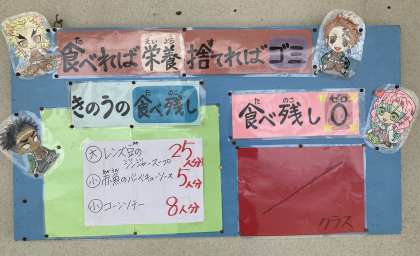 食べれば栄養 捨てればゴミ
きのうの食べ残し
食べ残し0
大 レンズ豆のジンジャースープ 25人分
小 赤魚のバーベキューソース 5人分
小 コーンソテー 8人分
クラス